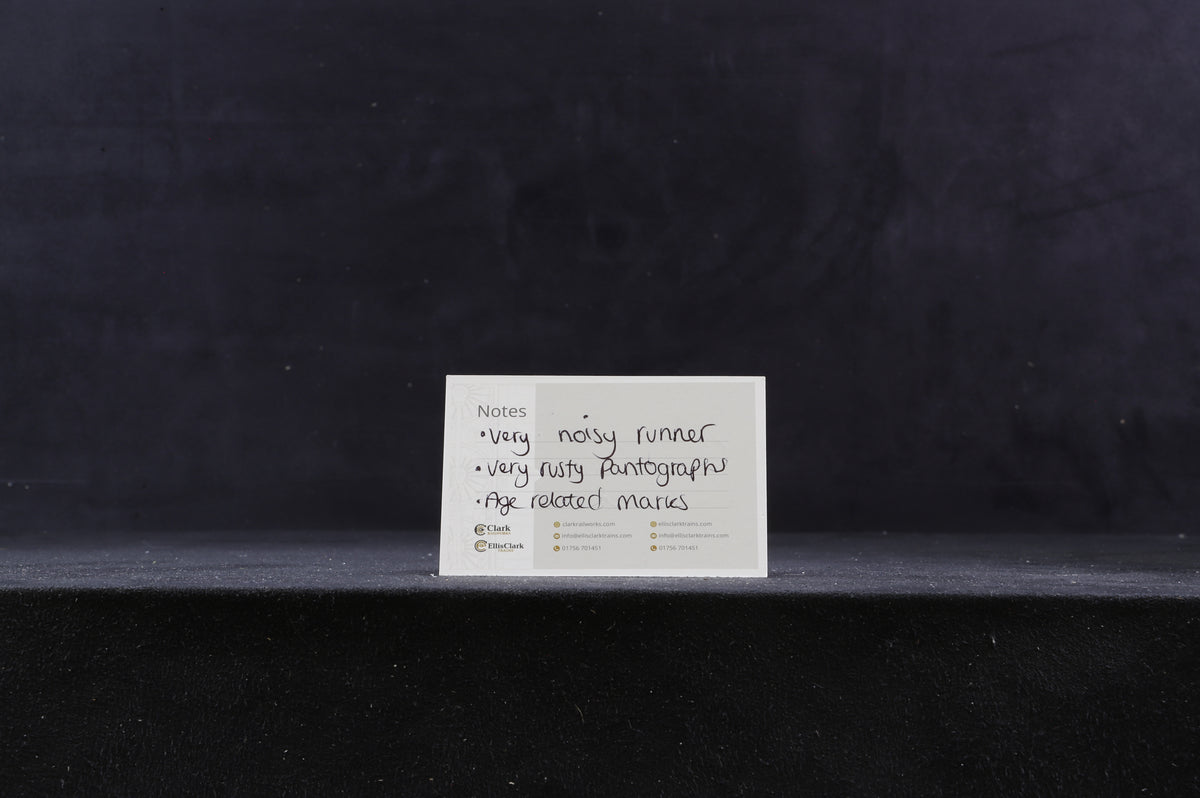 Notes
• Very noisy runner
• Very rusty pantographs
• Age related marks
Clark clarkrailworks.com ellisclarktrains.com
info@ellisclarktrains.com info@ellisclarktrains.com
EllisClark 01756 701451 01756 701451
TRAINS